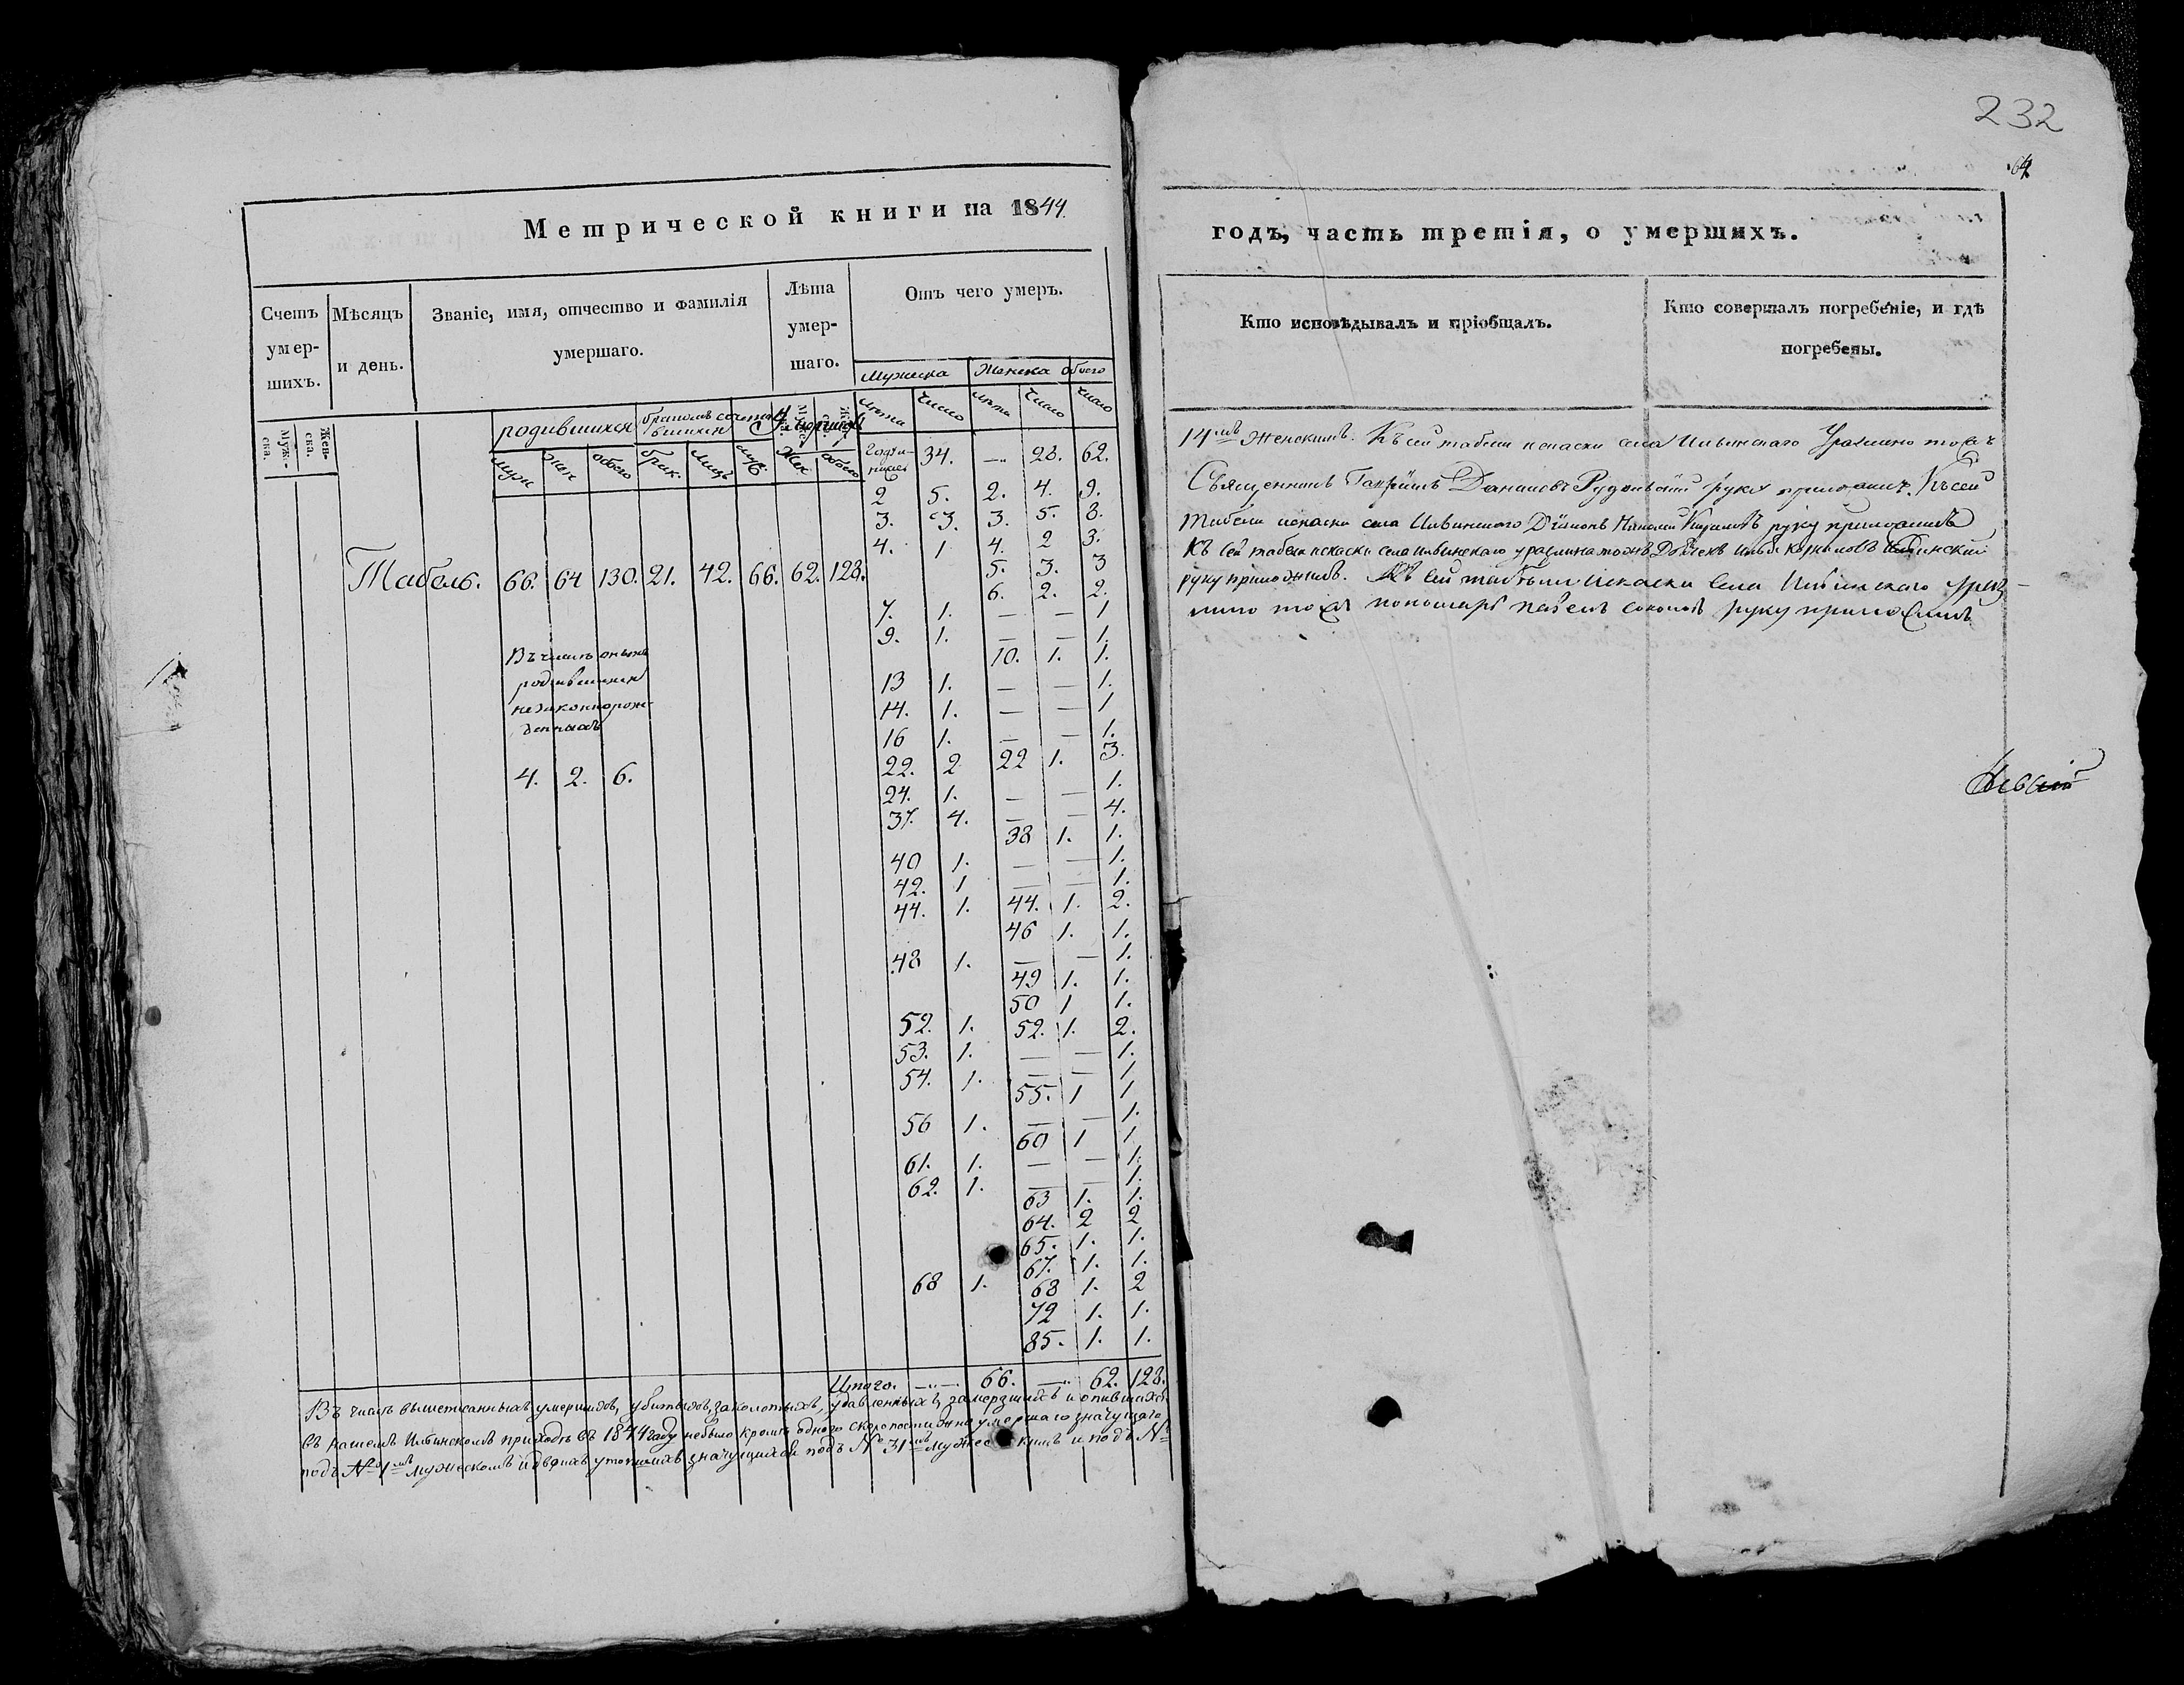 232
64
Метрической книги на 1844.
годъ, часть третія, о умершихъ.
Счетъ умерших.
Мѣсяцъ и день.
Званіе, имя, отчество и фамилія умершаго.
Лѣта умершаго.
Отъ чего умеръ.
Кто исповѣдывалъ и пріобщалъ.
Кто совершалъ погребеніе, и гдѣ погребены.
Мужеска Женска обоего
Муже-ска. Жен-ска.
родившихся
умершихъ
лѣта число лѣта число число
муж жен обоего брак. лицъ муж. жен обоего
34. — 28. 62.
2 5. 2. 4. 9.
3. 3. 3. 5. 8.
4. 1 4. 2 3.
5. 3. 3
6. 2. 2.
Табель. 66. 64 130. 21. 42. 66. 62. 128.
7. 1. — — 1
9. 1. — — 1.
10. 1. 1.
13 1. — — 1.
14. 1. — — 1
16 1. — — 1.
22. 2 22 1. 3.
24. 1. — — 1.
37. 4. — — 4.
38 1. 1.
40 1. — — 1.
42. 1 — — 1.
44. 1. 44. 1. 2.
46 1. 1.
48 1. — — 1.
49 1. 1.
50 1 1.
52. 1. 52. 1. 2.
53. 1. — — 1.
54. 1. — — 1
55. 1 1
56 1. — — 1.
60 1 1
61. 1. — — 1.
62. 1. — — 1.
63 1. 1.
64. 2 2
65. 1. 1.
67. 1. 1.
68 1. 68 1. 2
72 1. 1.
85. 1. 1.
Въ числѣ оныхъ
родившихся
незаконнорож-
денныхъ
4. 2. 6.
Итого. — 66. — 62. 128.
Въ числѣ вышеписанныхъ умершихъ, убитыхъ, заколотыхъ, удавленныхъ, замерзшихъ и опившихся
въ нашемъ Ильинскомъ приходѣ въ 1844 году небыло кромѣ одного скоропостижно умершаго значущаго
подъ № 1мъ мужескомъ и двухъ утопшихъ значущихся подъ № 31мъ мужескимъ и подъ №
14мъ Женскимъ. Къ сей табели села Ильинскаго тожъ
Священникъ Гавріилъ руку приложилъ. Къ сей
табели села Ильинскаго Діаконъ Николай руку приложилъ
Къ сей табели села Ильинскаго тожъ Дьячекъ Илья Ильинскій
руку приложилъ. Къ сей табели села Ильинскаго
тожъ пономарь Павелъ Соколовъ руку приложилъ